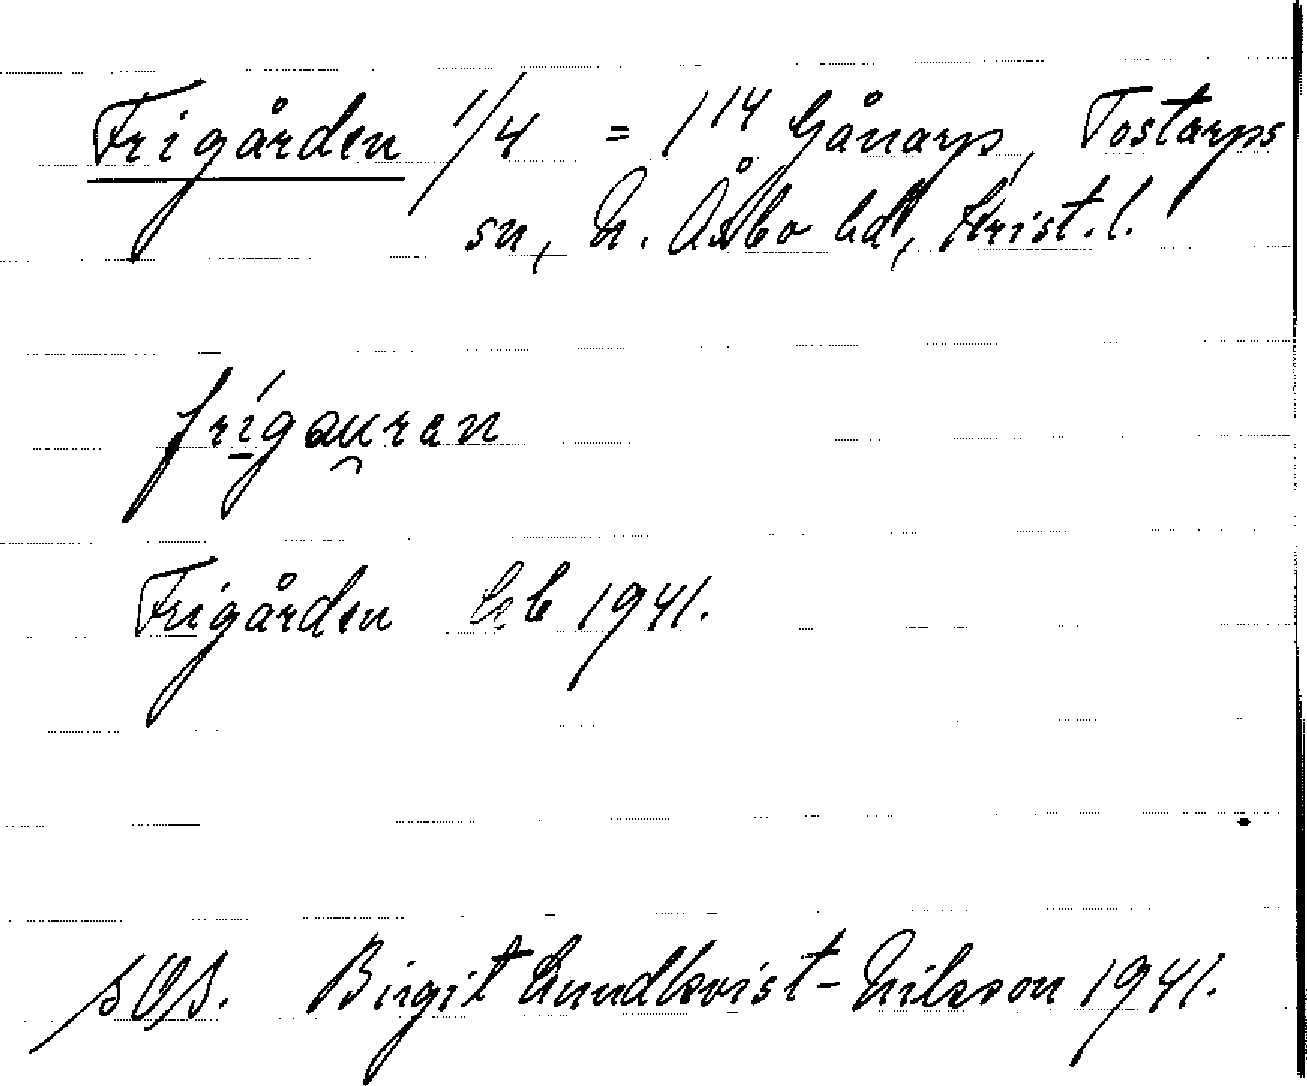 Frigården 1/4 = 1¹⁴ Gånarp, Tostarps
sn, N. Åsbo hd, Krist. l.
frígau̯ran
Frigården hb 1941.
SOS. Birgit Lundkvist-Nilsson 1941.